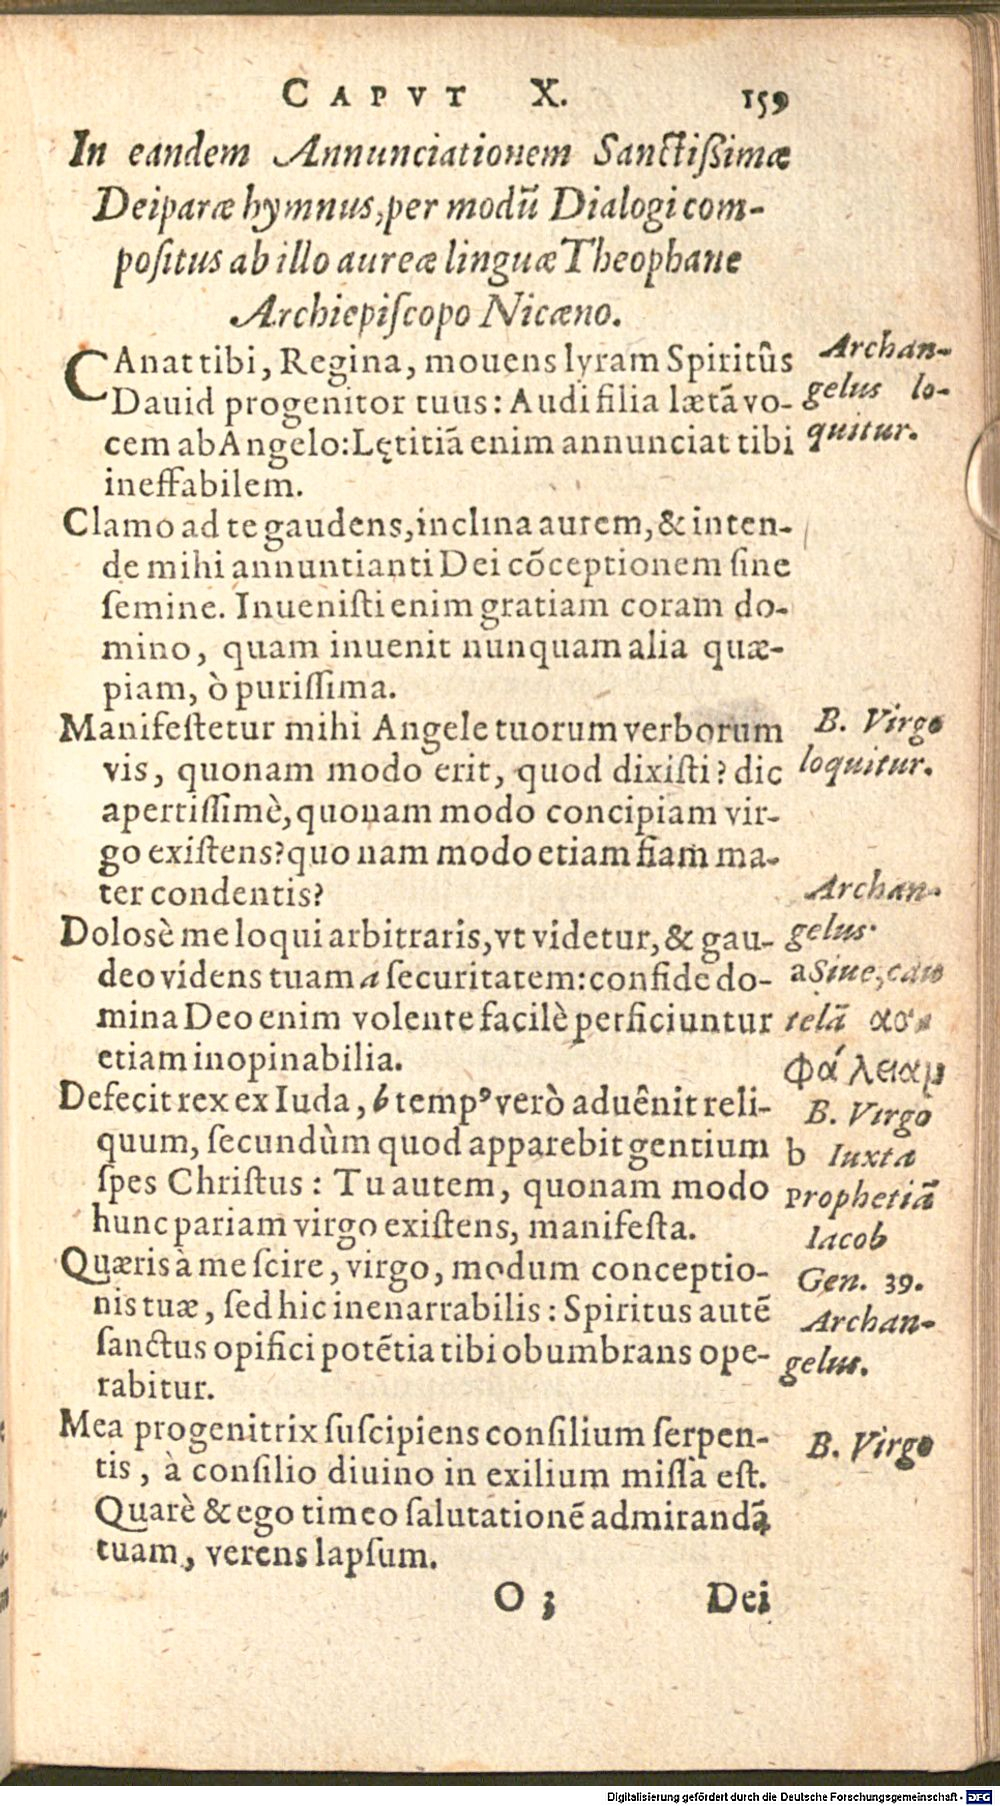 CAPVT X. 159
In eandem Annunciationem Sanctißimæ
Deiparæ hymnus, per modũ Dialogi com-
poſitus ab illo aureæ linguæ Theophane
Archiepiſcopo Nicæno.
CAnat tibi, Regina, mouens lyram Spiritûs
Dauid progenitor tuus: Audi filia lætã vo-
cem ab Angelo: Lętitiã enim annunciat tibi
ineffabilem.
Archan-
gelus lo-
quitur.
Clamo ad te gaudens, inclina aurem, & inten-
de mihi annuntianti Dei cõceptionem ſine
ſemine. Inueniſti enim gratiam coram do-
mino, quam inuenit nunquam alia quæ-
piam, ò puriſſima.
Manifeſtetur mihi Angele tuorum verborum
vis, quonam modo erit, quod dixiſti? dic
apertiſſimè, quonam modo concipiam vir-
go exiſtens? quonam modo etiam fiam ma-
ter condentis?
B. Virgo
loquitur.
Dolosè me loqui arbitraris, vt videtur, & gau-
deo videns tuam a ſecuritatem: confide do-
mina Deo enim volente facilè perficiuntur
etiam inopinabilia.
Archan-
gelus.
a Siue, cau
telã ασ-
φάλειαμ
Defecit rex ex Iuda, b tempꝰ verò aduênit reli-
quum, ſecundùm quod apparebit gentium
ſpes Chriſtus: Tu autem, quonam modo
hunc pariam virgo exiſtens, manifeſta.
B. Virgo
b Iuxta
prophetiã
Iacob
Gen. 39.
Quæris à me ſcire, virgo, modum conceptio-
nis tuæ, ſed hic inenarrabilis: Spiritus autẽ
ſanctus opifici potẽtia tibi obumbrans ope-
rabitur.
Archan-
gelus.
Mea progenitrix ſuſcipiens conſilium ſerpen-
tis, à conſilio diuino in exilium miſſa eſt.
Quarè & ego timeo ſalutationẽ admirandã
tuam, verens lapſum.
B. Virgo
O 3 Dei
Digitalisierung gefördert durch die Deutsche Forschungsgemeinschaft - DFG